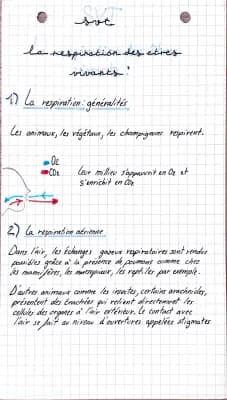 svt
La respiration des êtres
vivants :
1) La respiration : généralités
Les animaux, les végétaux, les champignons respirent.
O₂
CO₂
Leur milieu s'appauvrit en O₂ et
s'enrichit en CO₂
2) La respiration aérienne
Dans l'air, les échanges gazeux respiratoires sont rendus
possibles grâce à la présence de poumons comme chez
les mammifères, les marsupiaux, les reptiles par exemple.
D'autres animaux comme les insectes, certains arachnides,
présentent des trachées qui relient directement les
cellules des organes à l'air extérieur. Le contact avec
l'air se fait au niveau d'ouvertures appelées stigmates